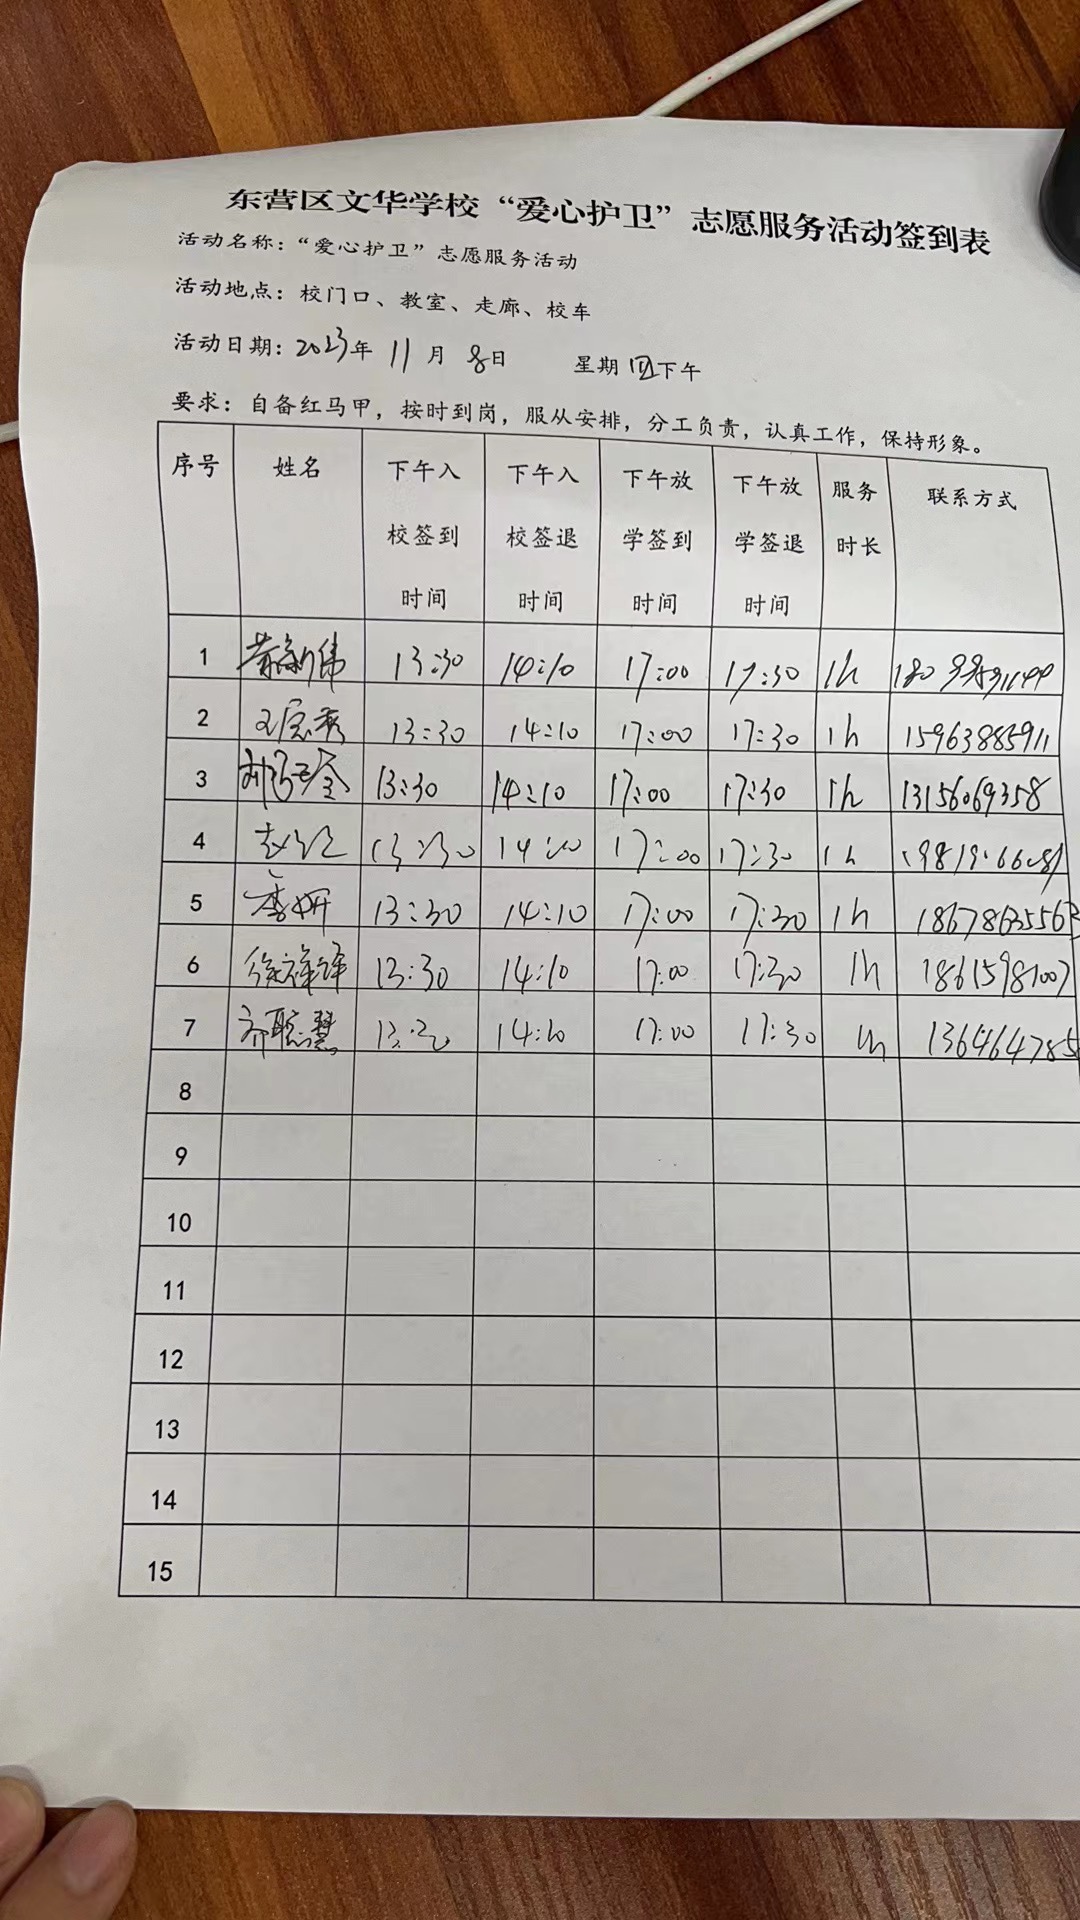 东营区文华学校“爱心护卫”志愿服务活动签到表
活动名称：“爱心护卫”志愿服务活动
活动地点：校门口、教室、走廊、校车
活动日期：2023年 11月 8日 星期四下午
要求：自备红马甲，按时到岗，服从安排，分工负责，认真工作，保持形象。
序号 姓名 下午入校签到时间 下午入校签退时间 下午放学签到时间 下午放学签退时间 服务时长 联系方式
1 13:30 14:10 17:00 17:30 1h
2 13:30 14:10 17:00 17:30 1h 15963885911
3 13:30 14:10 17:00 17:30 1h 13156069358
4 13:30 14:10 17:00 17:30 1h
5 李妍 13:30 14:10 17:00 17:30 1h 18678635563
6 13:30 14:10 17:00 17:30 1h 18615981007
7 齐聪慧 14:10 17:00 17:30 1h
8
9
10
11
12
13
14
15